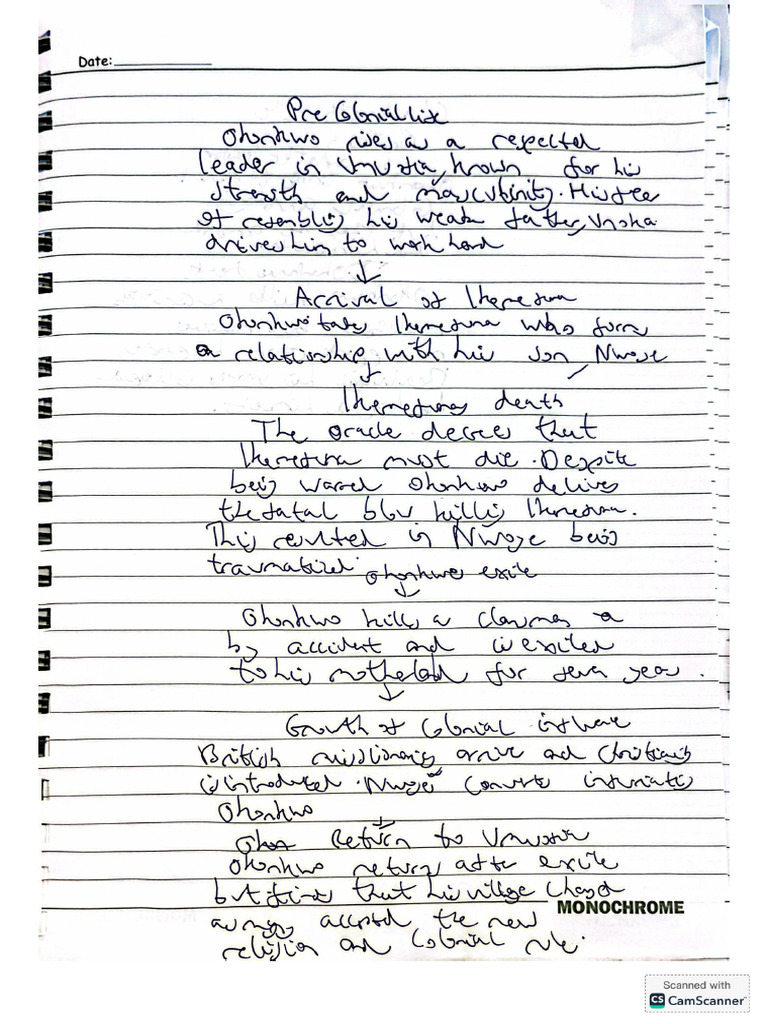 Date:
Pre Colonial life
Okonkwo rises as a respected
leader in Umuofia, known for his
strength and masculinity. His fear
of resembling his weak father, Unoka
drives him to work hard
↓
Arrival of Ikemefuna
Okonkwo takes Ikemefuna who forms
a relationship with his son, Nwoye
↓
Ikemefunas death
The oracle decrees that
Ikemefuna must die. Despite
being warned Okonkwo delivers
the fatal blow killing Ikemefuna.
This resulted in Nwoye being
traumatized.
Okonkwo exile
↓
Okonkwo kills a clansman
by accident and is exiled
to his motherland for seven years.
↓
Growth of Colonial influence
British missionaries arrive and Christianity
is introduced. Nwoye converts infuriating
Okonkwo
↓
Return to Umuofia
Okonkwo returns after exile
but finds that his village changed
as many accepted the new
religion and colonial rule.
MONOCHROME
Scanned with
CS CamScanner